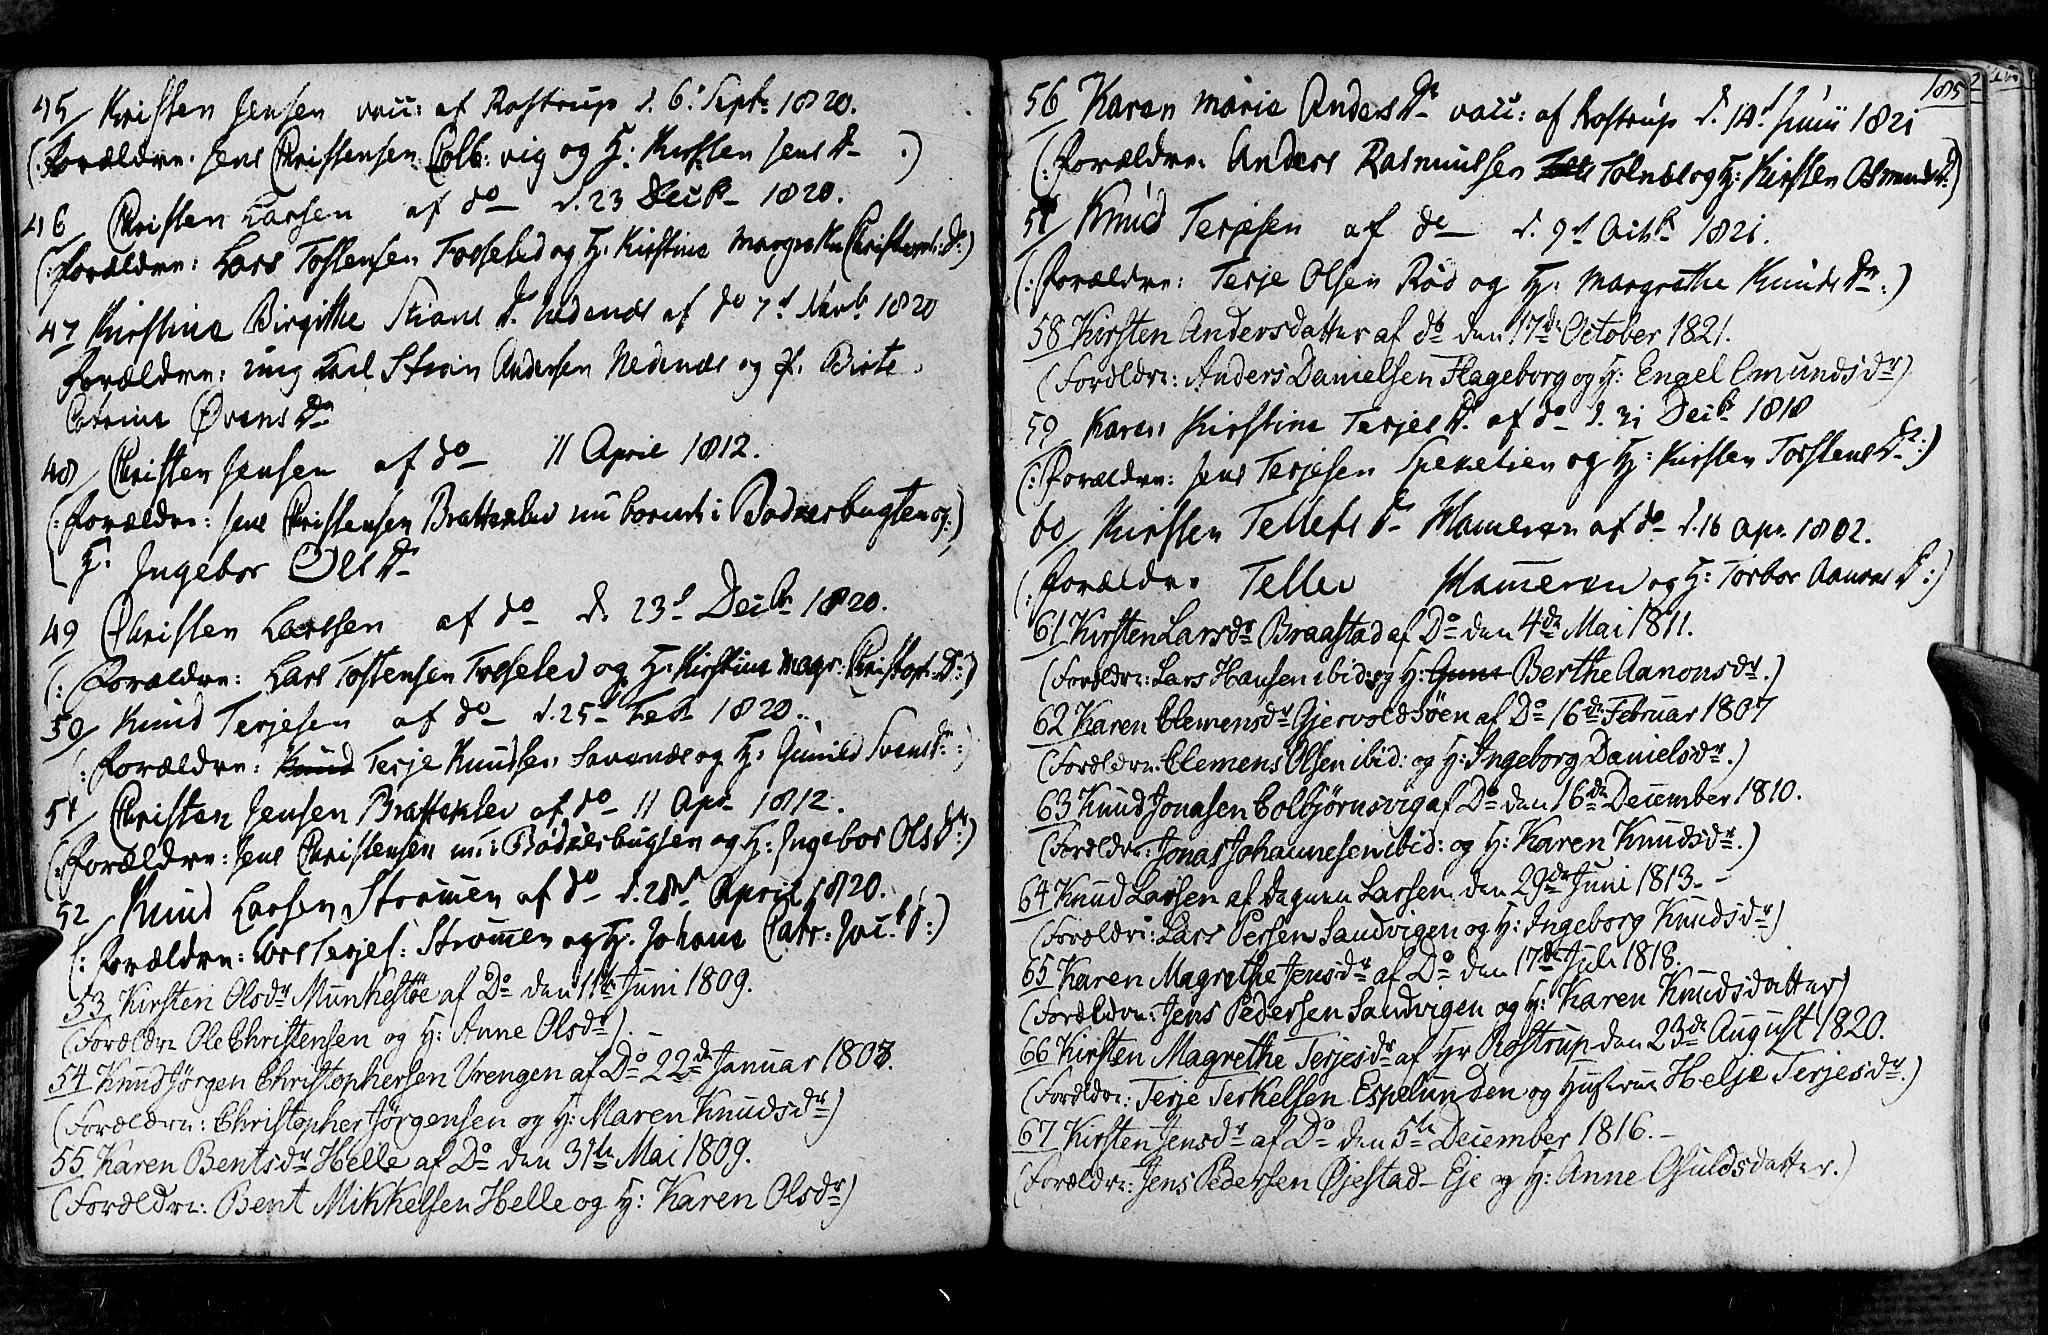 45 Kristen Jensen vacc: af Rostrup d. 6. Septr 1820.
(: Forældre. Jens Christensen Colb: vig og H: Kirsten Jens Dr :)
46 Christen Larsen af do d. 23 Decbr 1820.
(: Forældre: Lars Tostensen Fosselid og H: Kirstine Margrethe Christens: Dr:)
47 Kirstine Birgithe Stians Dr. Nedenæs af do 7d Novbr 1820
Forældre: ung Karl Stian Andersen Nedenæs og P. Birte
Catrine Øvens Dr
48 Christen Jensen af do 11 April 1812.
(: Forældre: Jens Christensen Bratteklev nu boende i Bodkerbugten og :)
H: Ingebor Ols Dr
49 Christen Larssen af do d. 23d Decbr 1820.
(: Forældre: Lars Tostensen Fosselev og H: Kirstine Magr: Christoph: Dr:)
50 Knud Terjesen af do d. 25d Febr 1820.
(: Forældre: Knud Terje Knudsen Savenæs og H: Gunild Svens Dr:)
51 Christen Jensen Bratteklev af do 11 Apr 1812.
(: Forældre: Jens Christensen nu i Bödkerbugten og H: Ingebor Ols Dr:)
52 Knud Larsen Strømmen af do d. 28d April 1820.
(: Forældre: Lars Terjes: Strømmen og H. Johane Catr: Jac: Dr:)
53 Kirsten Olsdr Munkestöe af Do den 11te Juni 1809.
(Forældre Ole Christensen og H: Anne Olsdr).
54 Knud Jørgen Christophersen Vrengen af Do 22de Januar 1808.
(Forældre: Christopher Jørgensen og H: Maren Knudsdr)
55 Karen Bentsdr Helle af Do den 31te Mai 1809.
(Forældre: Bent Mikkelsen Helle og H: Karen Olsdr)
185
56 Karen Marie Anders Dr vacc: af Rostrup d. 14d Junii 1821
(: Forældre: Anders Rasmussen Tolnes og H: Kirsten Osmunds Dr:)
57 Knud Terjesen af do d. 9d Octbr 1821.
(: Forældre: Terje Olsen Röd og H: Margrethe Knuds Dr:)
58 Kirsten Andersdatter af do den 17de October 1821.
(Forældre: Anders Danielsen Hageborg og H: Engel Emundsdr)
59 Karen Kirstine Terjes Dr. af do d. 31 Decbr 1818
(: Forældre: Jens Terjesen Speketien og H: Kirsten Tostens Dr:)
60 Kirsten Tellefs Dr Hameren af do d. 16 Apr. 1802.
(: Forældre Tellev Hameren og H: Torbor Aanons Dr:)
61 Kirsten Larsdr Braastad af Do den 4de Mai 1811.
(Forældre: Lars Hansen ibid: og H: Gune Berthe Aanonsdr.)
62 Karen Clemensdr Gjervoldsöen af Do 16de Februar 1807
(Forældre: Clemens Olsen ibid: og H: Ingeborg Danielsdr.)
63 Knud Jonasen Colbjörnsvig af Do den 16de December 1810.
(Forældre: Jonas Johannesen ibid: og H: Karen Knudsdr.)
64 Knud Larsen af Larsen den 29de Juni 1813.
(Forældre: Lars Persen Sandvigen og H: Ingeborg Knudsdr)
65 Karen Magrethe Jensdr af Do den 17de Juli 1818.
(Forældre: Jens Pedersen Sandvigen og H: Karen Knudsdatter)
66 Kirsten Magrethe Terjesdr af Hr Rostrup den 23de August 1820.
(Forældre: Terje Terkelsen Espelunden og Hustrue Helje Terjesdr.)
67 Kirsten Jensdr af Do den 5te December 1816.
(Forældre: Jens Pedersen Øjestad-Eje og H: Anne Osuldsdatter.)